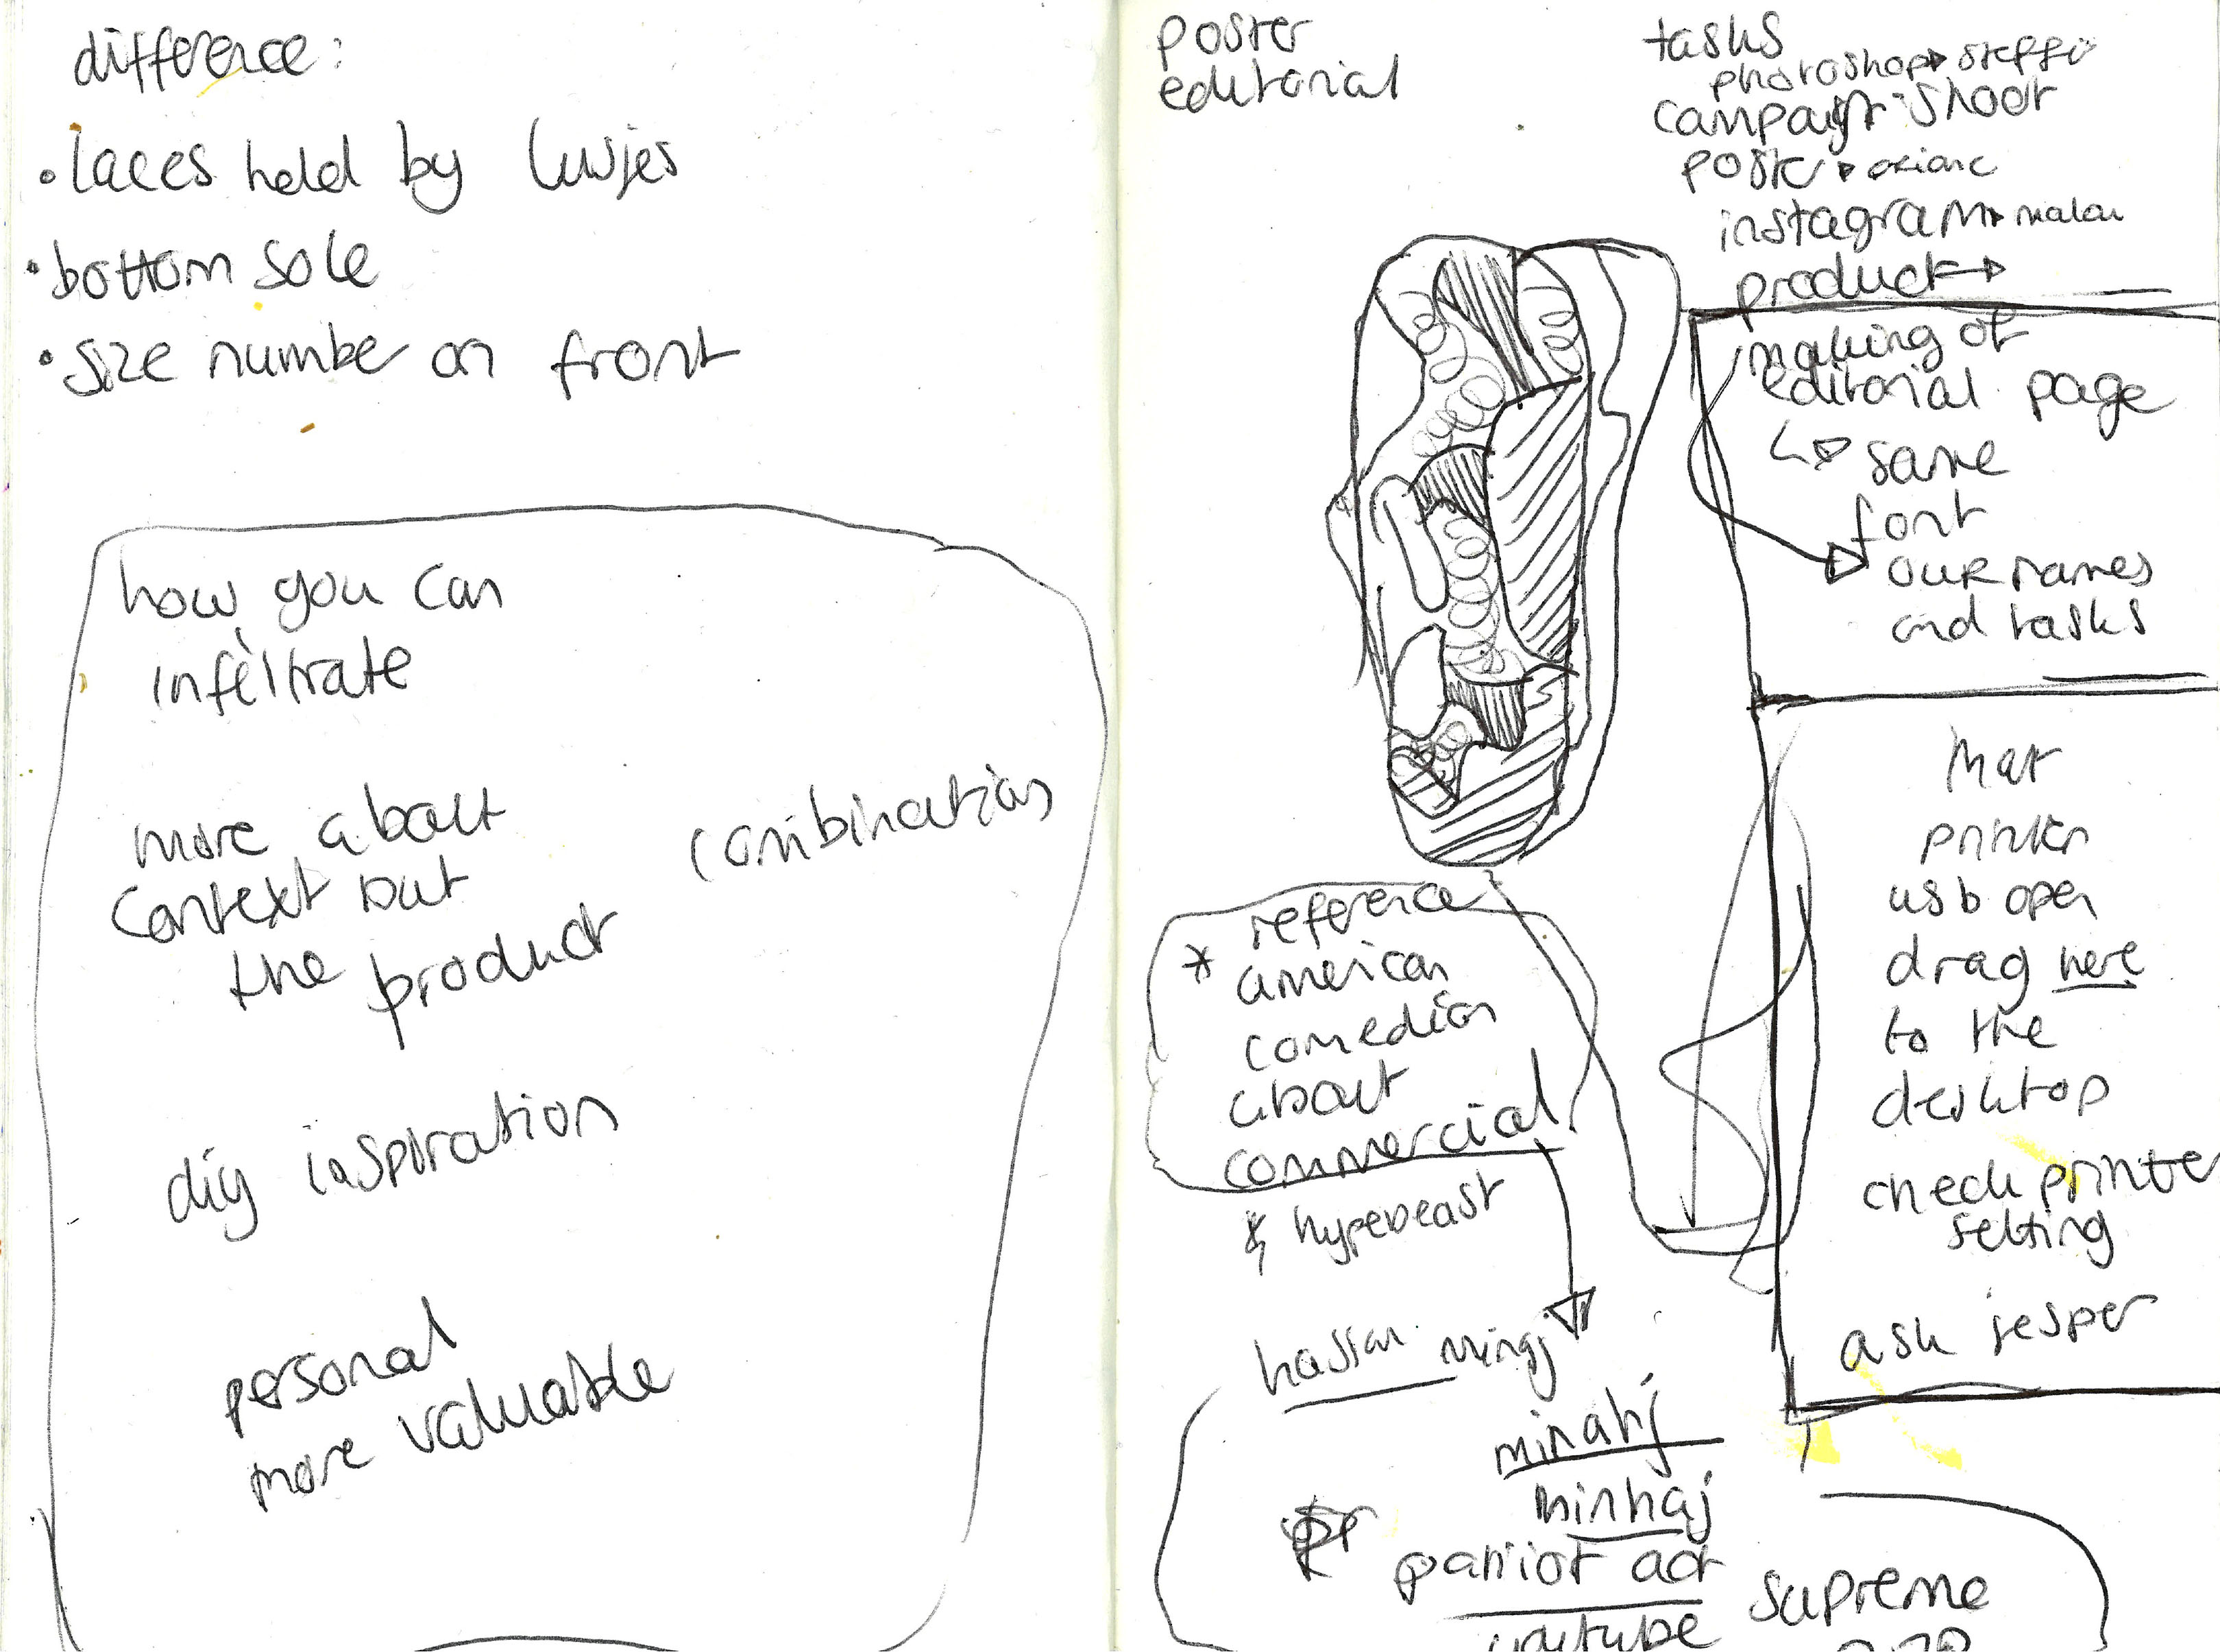 difference:
• laces held by lusjes
• bottom sole
• size number on front
how you can
infiltrate
more about
context but
the product
combination
diy inspiration
personal
more valuable
poster
editorial
tasks
photoshop steffi
campaign shoot
poster
instagram
product
making of
editorial page
same
font
our names
and tasks
mat
printer
usb open
drag here
to the
desktop
check printer
setting
ask jesper
* reference
american
comedian
about
commercial
& hypebeast
hassan minaj
minahj
minhaj
patriot act
youtube
supreme